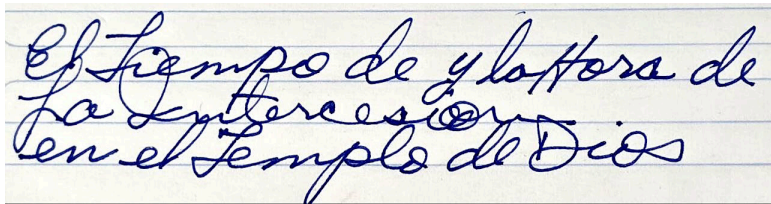 El Tiempo de y la Hora de
La Intercesion
en el Templo de Dios